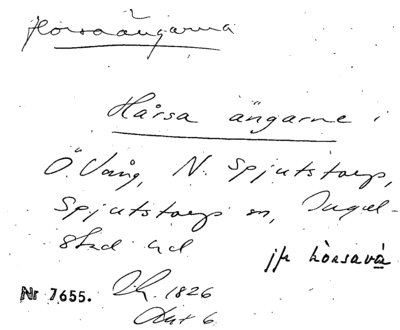 Horsaängarna
Hårsa ängarne i
Ö. Vång, N. Spjutstorp,
Spjutstorp sn, Ingel-
stad hd
jfr hòrsavà
Nr 7655.
1826
6